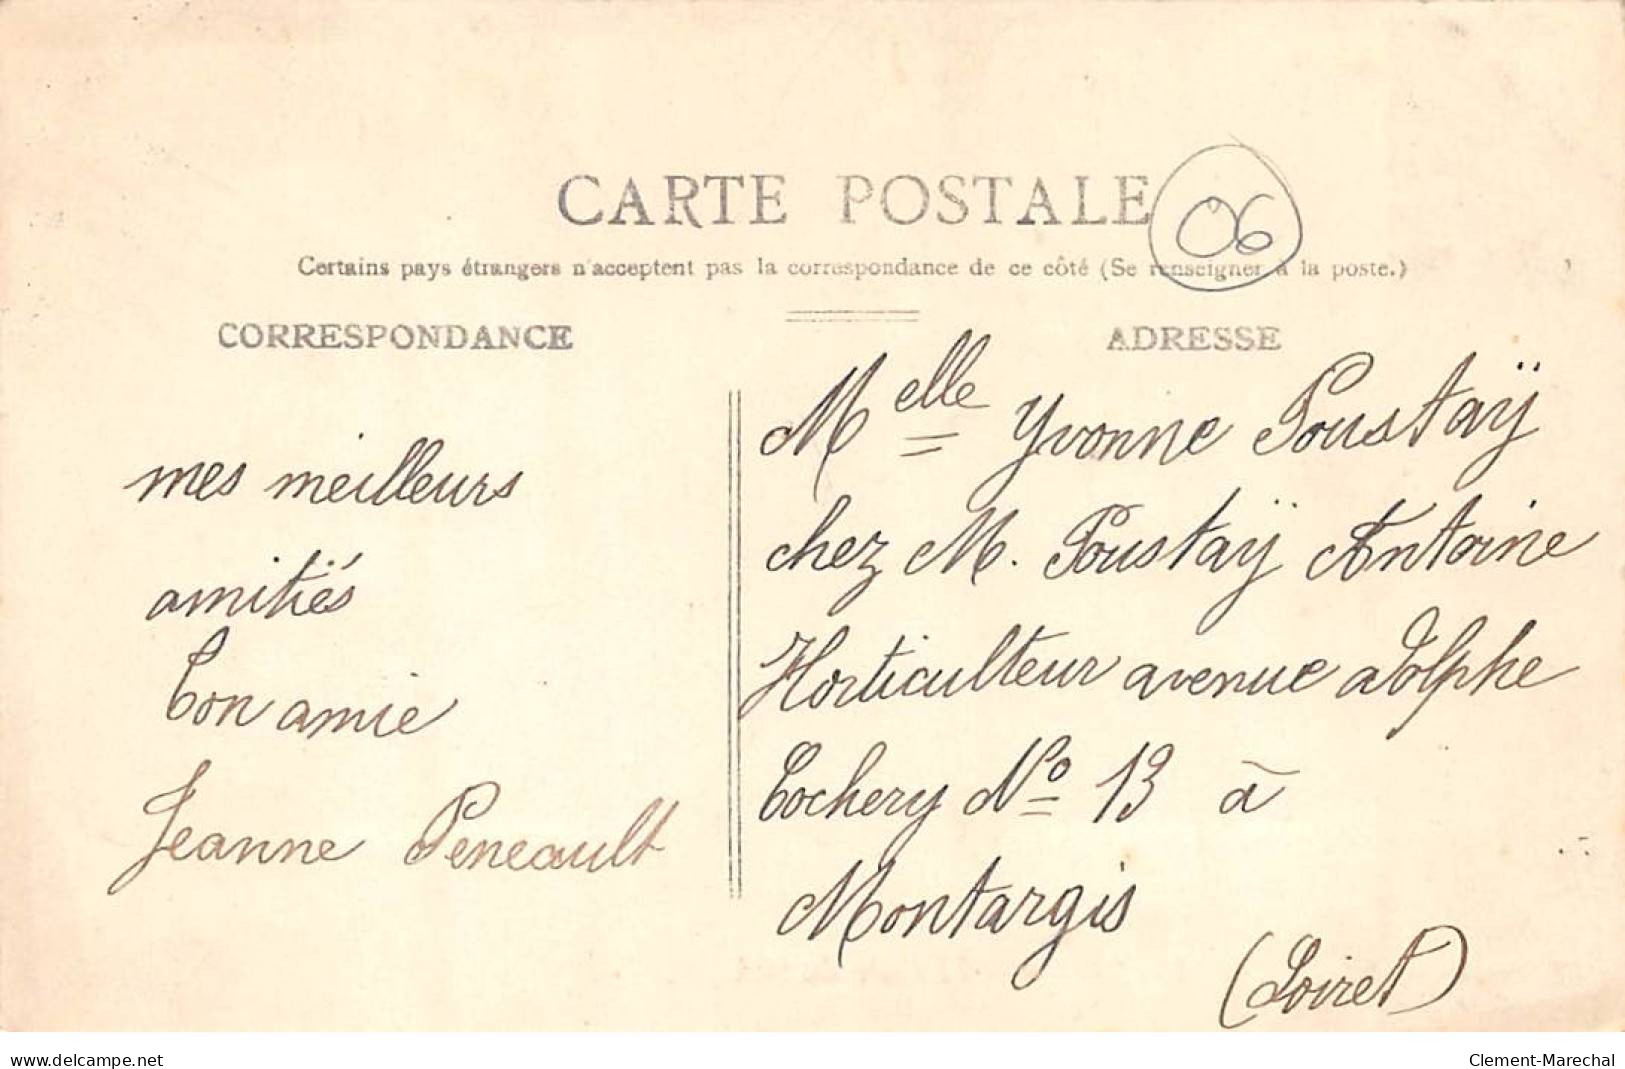 CARTE POSTALE
06
Certains pays étrangers n'acceptent pas la correspondance de ce côté (Se renseigner à la poste.)
CORRESPONDANCE
mes meilleurs
amitiés
Ton amie
Jeanne Peneault
ADRESSE
Melle Yvonne Poustaÿ
chez M. Poustaÿ Antoine
Horticulteur avenue adolphe
Cochery No 13 à
Montargis
(Loiret)
www.delcampe.net
Clement-Marechal